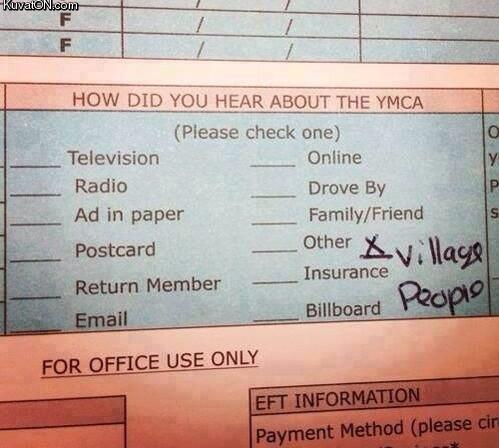 KuvatON.com
F / /
F / /
HOW DID YOU HEAR ABOUT THE YMCA
(Please check one)
Television Online
Radio Drove By
Ad in paper Family/Friend
Postcard Other X Village
Return Member Insurance People
Email Billboard
FOR OFFICE USE ONLY
EFT INFORMATION
Payment Method (please cir